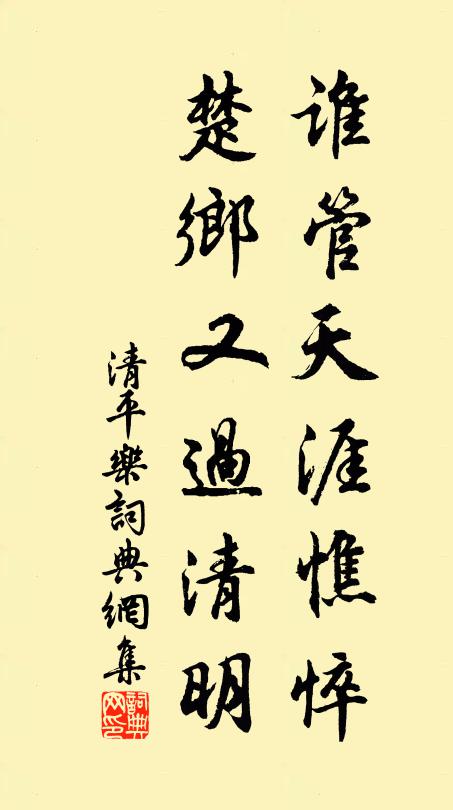 谁管天涯憔悴
楚鄉又過清明
清平樂詞典網集
詞典网印